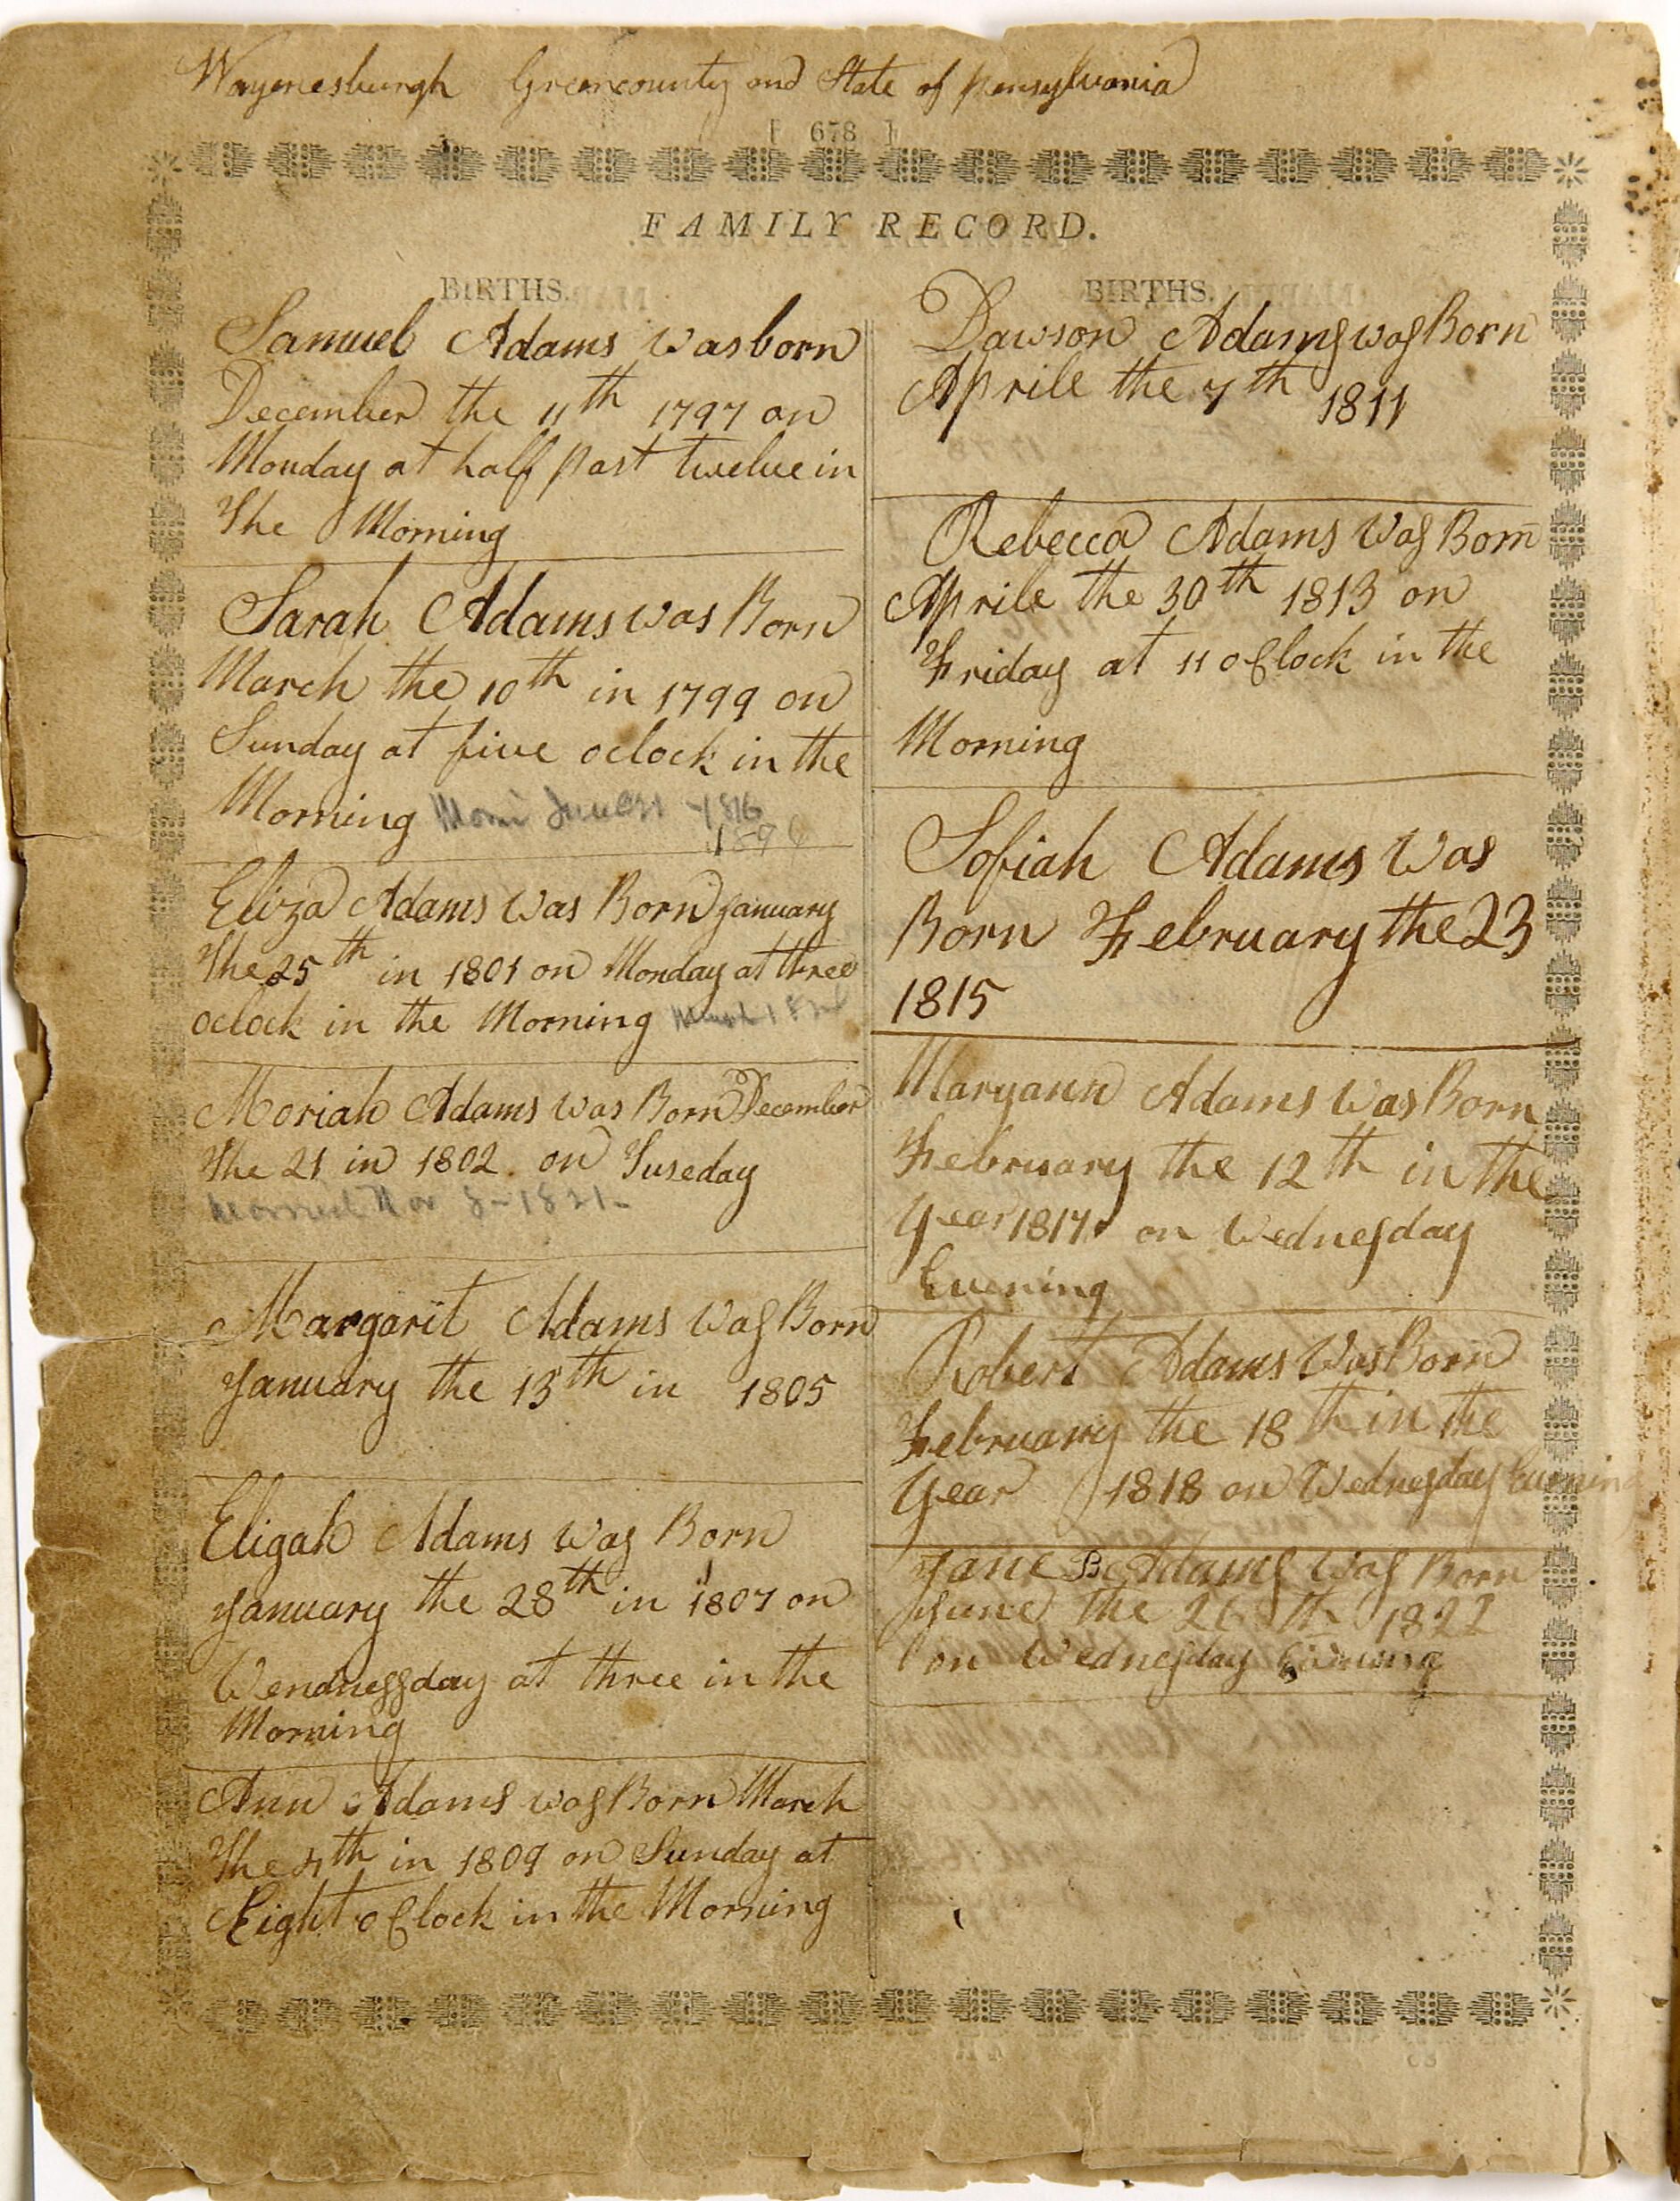 Waynesburgh Greencounty and State of pensylvania
[ 678 ]
FAMILY RECORD.
BIRTHS.
Samuel Adams was born
December the 11th 1797 on
Monday at half past twelve in
The Morning
Sarah Adams was Born
March the 10th in 1799 on
Sunday at five oclock in the
Morning 1816
Eliza Adams was Born January
The 25th in 1801 on Monday at three
oclock in the Morning
Moriah Adams was Born December
The 21 in 1802 on Tuseday
Married Nov 8-1821-
Margarit Adams was Born
January the 15th in 1805
Eligah Adams was Born
January the 28th in 1807 on
Wendnessday at three in the
Morning
Ann Adams was Born March
The 4th in 1809 on Sunday at
Eight oClock in the Morning
BIRTHS.
Dawson Adams was Born
Aprile the 7th 1811
Rebecca Adams Was Born
Aprile the 30th 1813 on
Friday at 11 oClock in the
Morning
Sofiah Adams Was
Born February the 23
1815
Maryann Adams Was Born
February the 12th in the
Year 1817 on Wednesday
Evening
Robert Adams Was Born
February the 18th in the
Year 1818 on Wednesday Evening
Jane B Adams was Born
June the 26th 1822
on Wednesday Evening